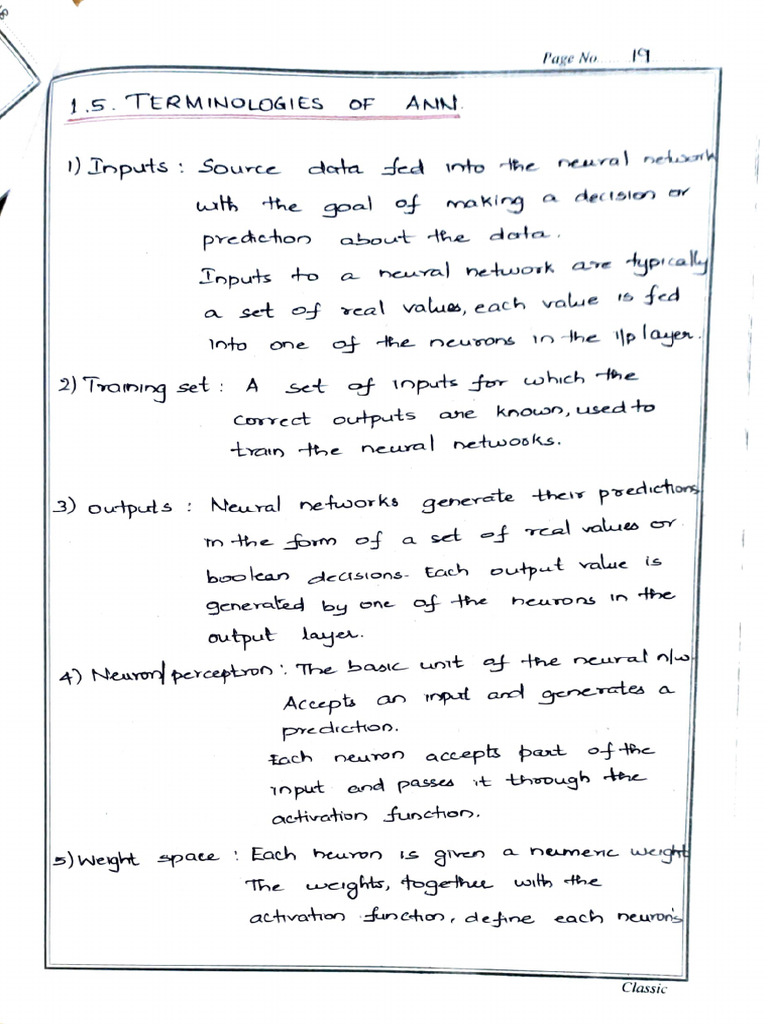 Page No...... 19
1.5. TERMINOLOGIES OF ANN.
1) Inputs : Source data fed into the neural network
with the goal of making a decision or
prediction about the data.
Inputs to a neural network are typically
a set of real values, each value is fed
into one of the neurons in the i/p layer.
2) Training set : A set of inputs for which the
correct outputs are known, used to
train the neural netwooks.
3) outputs : Neural networks generate their predictions
in the form of a set of real values or
boolean decisions. Each output value is
generated by one of the neurons in the
output layer.
4) Neuron/perceptron : The basic unit of the neural n/w
Accepts an input and generates a
prediction.
Each neuron accepts part of the
input and passes it through the
activation function.
5) Weight space : Each neuron is given a numeric weight
The weights, together with the
activation function, define each neuron's
Classic